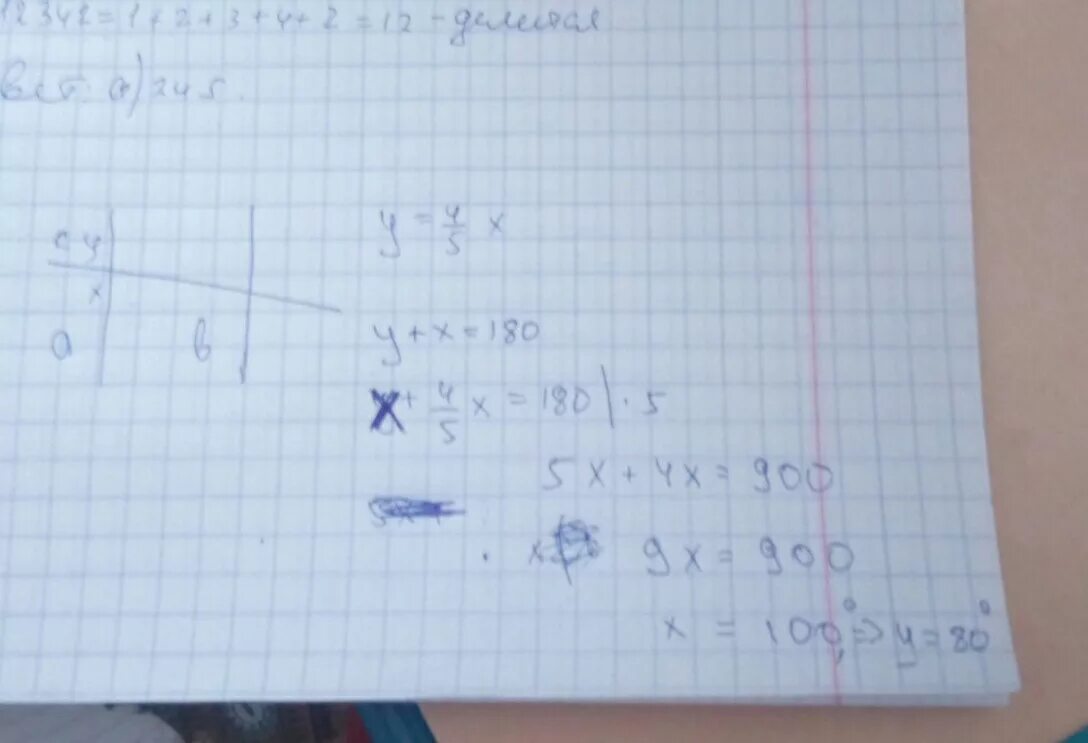 12342=1+2+3+4+2=12-делится
а) 245.
с у
х
а в
y = 4/5 x
y + x = 180
x + 4/5 x = 180 | · 5
5x + 4x = 900
9x = 900
x = 100°, => y = 80°